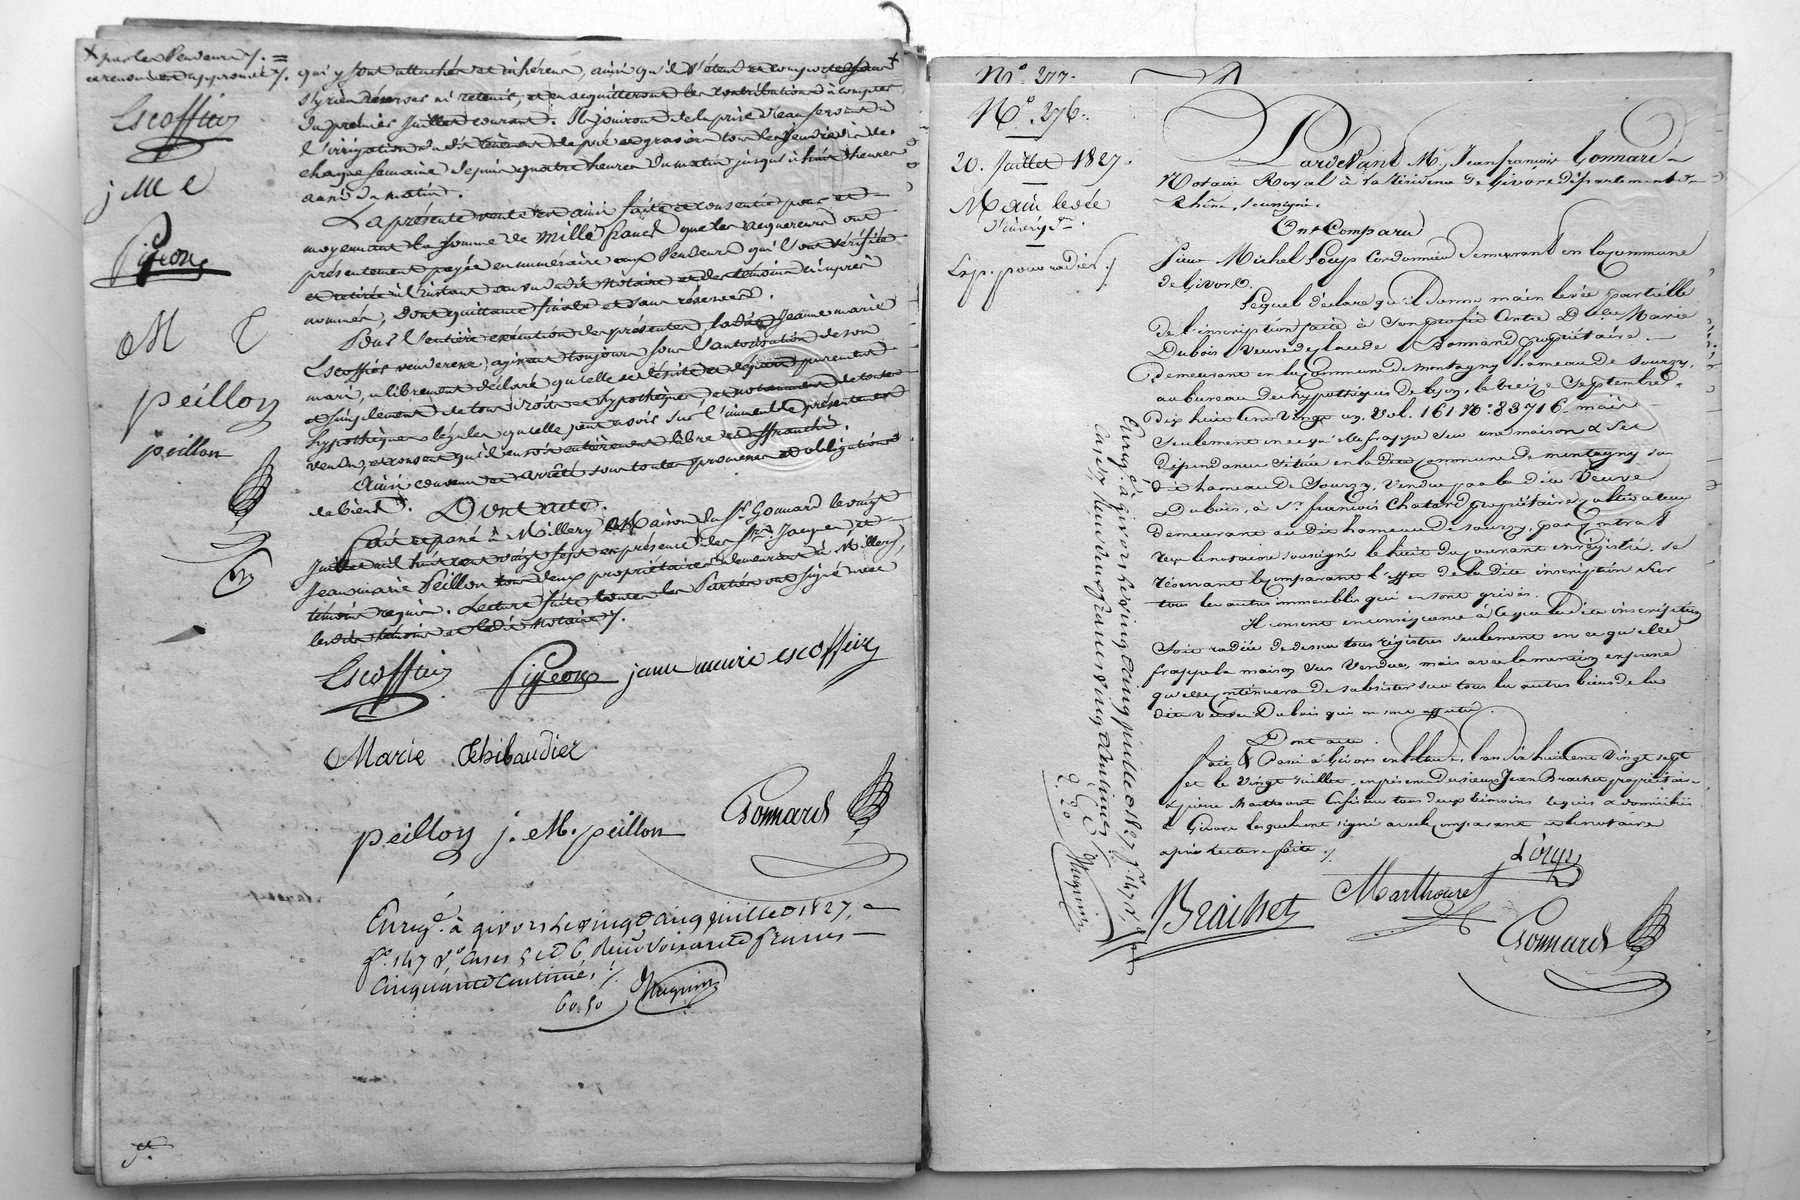 + par les Vendeurs /. =
ce renvoi est approuvé /.
Escoffier
j M e
Pigeon
M T
peillon
peillon
qui y sont attachés et inhérens, ainsi qu'il s'étend et comporte +
s'y rien réserver ni retenir, et en acquitteront les contributions à compter
du premier Juillet courant. Ils jouiront de la prise d'eau servant à
l'irrigation du dit tènement de pré et gravier tous les Jeudis de
chaque semaine depuis quatre heures du matin jusqu'à huit heures
aussi du matin.
La présente vente est ainsi faite et consentie pour et
moyennant la somme de Mille francs que les acquéreurs ont
présentement payée en numéraire aux Vendeurs qui l'ont vérifiée
et retirée à l'instant au vu du dit Notaire et des témoins ci après
nommés, dont quittance finale et sans réserve.
Pour l'entière exécution des présentes, la dite Jeanne marie
Escoffier venderesse, agissant toujours sous l'autorisation de son
mari, a librement déclaré qu'elle se désiste et départ purement
et simplement de tous droits et hypothèques et notamment de toutes
hypothèques légales qu'elle peut avoir sur l'immeuble présentement
vendu, et consent qu'il en soit entièrement libre et affranchi.
Ainsi convenu et arrêté sous toutes promesses et obligations
de biens. Dont acte.
Fait et passé à Millery Maison du Sr. Gonnard le vingt
Juillet mil huit cent vingt sept en présence des Srs. Jacques et
Jean marie Peillon tous deux propriétaires demeurant à Millery,
témoins requis. Lecture faite toutes les Parties ont signé avec
les dits témoins et le dit Notaire /.
Escoffier Pigeon jeane marie escoffier
Marie Thibaudier
peillon j. M. peillon Gonnard
Enregé. à givors le vingt cinq juillet 1827,
fo. 147 Vo. Cases 5 et 6, Reçu soixante francs
cinquante centimes /.
60.50 Huguin
No. 277.
No. 276.
20. Juillet 1827.
Main levée
d'inscrip.on.
Exp. pour radier /.
Pardevant Me. Jean françois Gonnard
Notaire Royal à la résidence de Givors département du
Rhône, soussigné.
Ont Comparu
Sieur Michel Loup cordonnier demeurant en la commune
de Givors.
Lequel déclare qu'il donne main levée partielle
de l'inscription faite à son profit contre Dme. Marie
Dubois veuve de claude Bonnand propriétaire
demeurant en la commune de montagny hameau de sourzy,
au bureau des hypothèques de lyon, le treize Septembre
dix huit cent vingt un, Vol. 161 No. 83716 mais
seulement en ce qu'elle frappe sur une maison & ses
dépendances située en la dite commune de montagny au
dit hameau de Sourzy, vendue par la dite Veuve
Dubois, à Sr. françois Chatard propriétaire cultivateur
demeurant au dit hameau de sourzy, par contrat
reçu le notaire soussigné le huit du courant enregistré, se
réservant le comparant l'effet de la dite inscription sur
tous les autres immeubles qui en sont grevés.
Il consent en conséquence à ce que la dite inscription
soit radiée de dessus tous régistres seulement en ce qu'elle
frappe la maison sus vendue, mais avec la mention expresse
qu'elle continuera de subsister sur tous les autres biens de la
dite veuve Dubois qui en sont affectés.
Dont acte.
fait & Passé à Givors en l'étude, l'an dix huit cent Vingt sept
et le Vingt Juillet, en présence des sieurs Jean Brachet propriétaire
& pierre Marthouret Confiseur tous deux témoins requis & domiciliés
à Givors lesquels ont signé avec le comparant & le notaire
après lecture faite /.
Brachet Marthouret Loup
Gonnard
Enregé. à givors le vingt cinq juillet 1827 fo. 147 Vo.
Case 7, Reçu deux francs vingt centimes
2. 20 Huguin